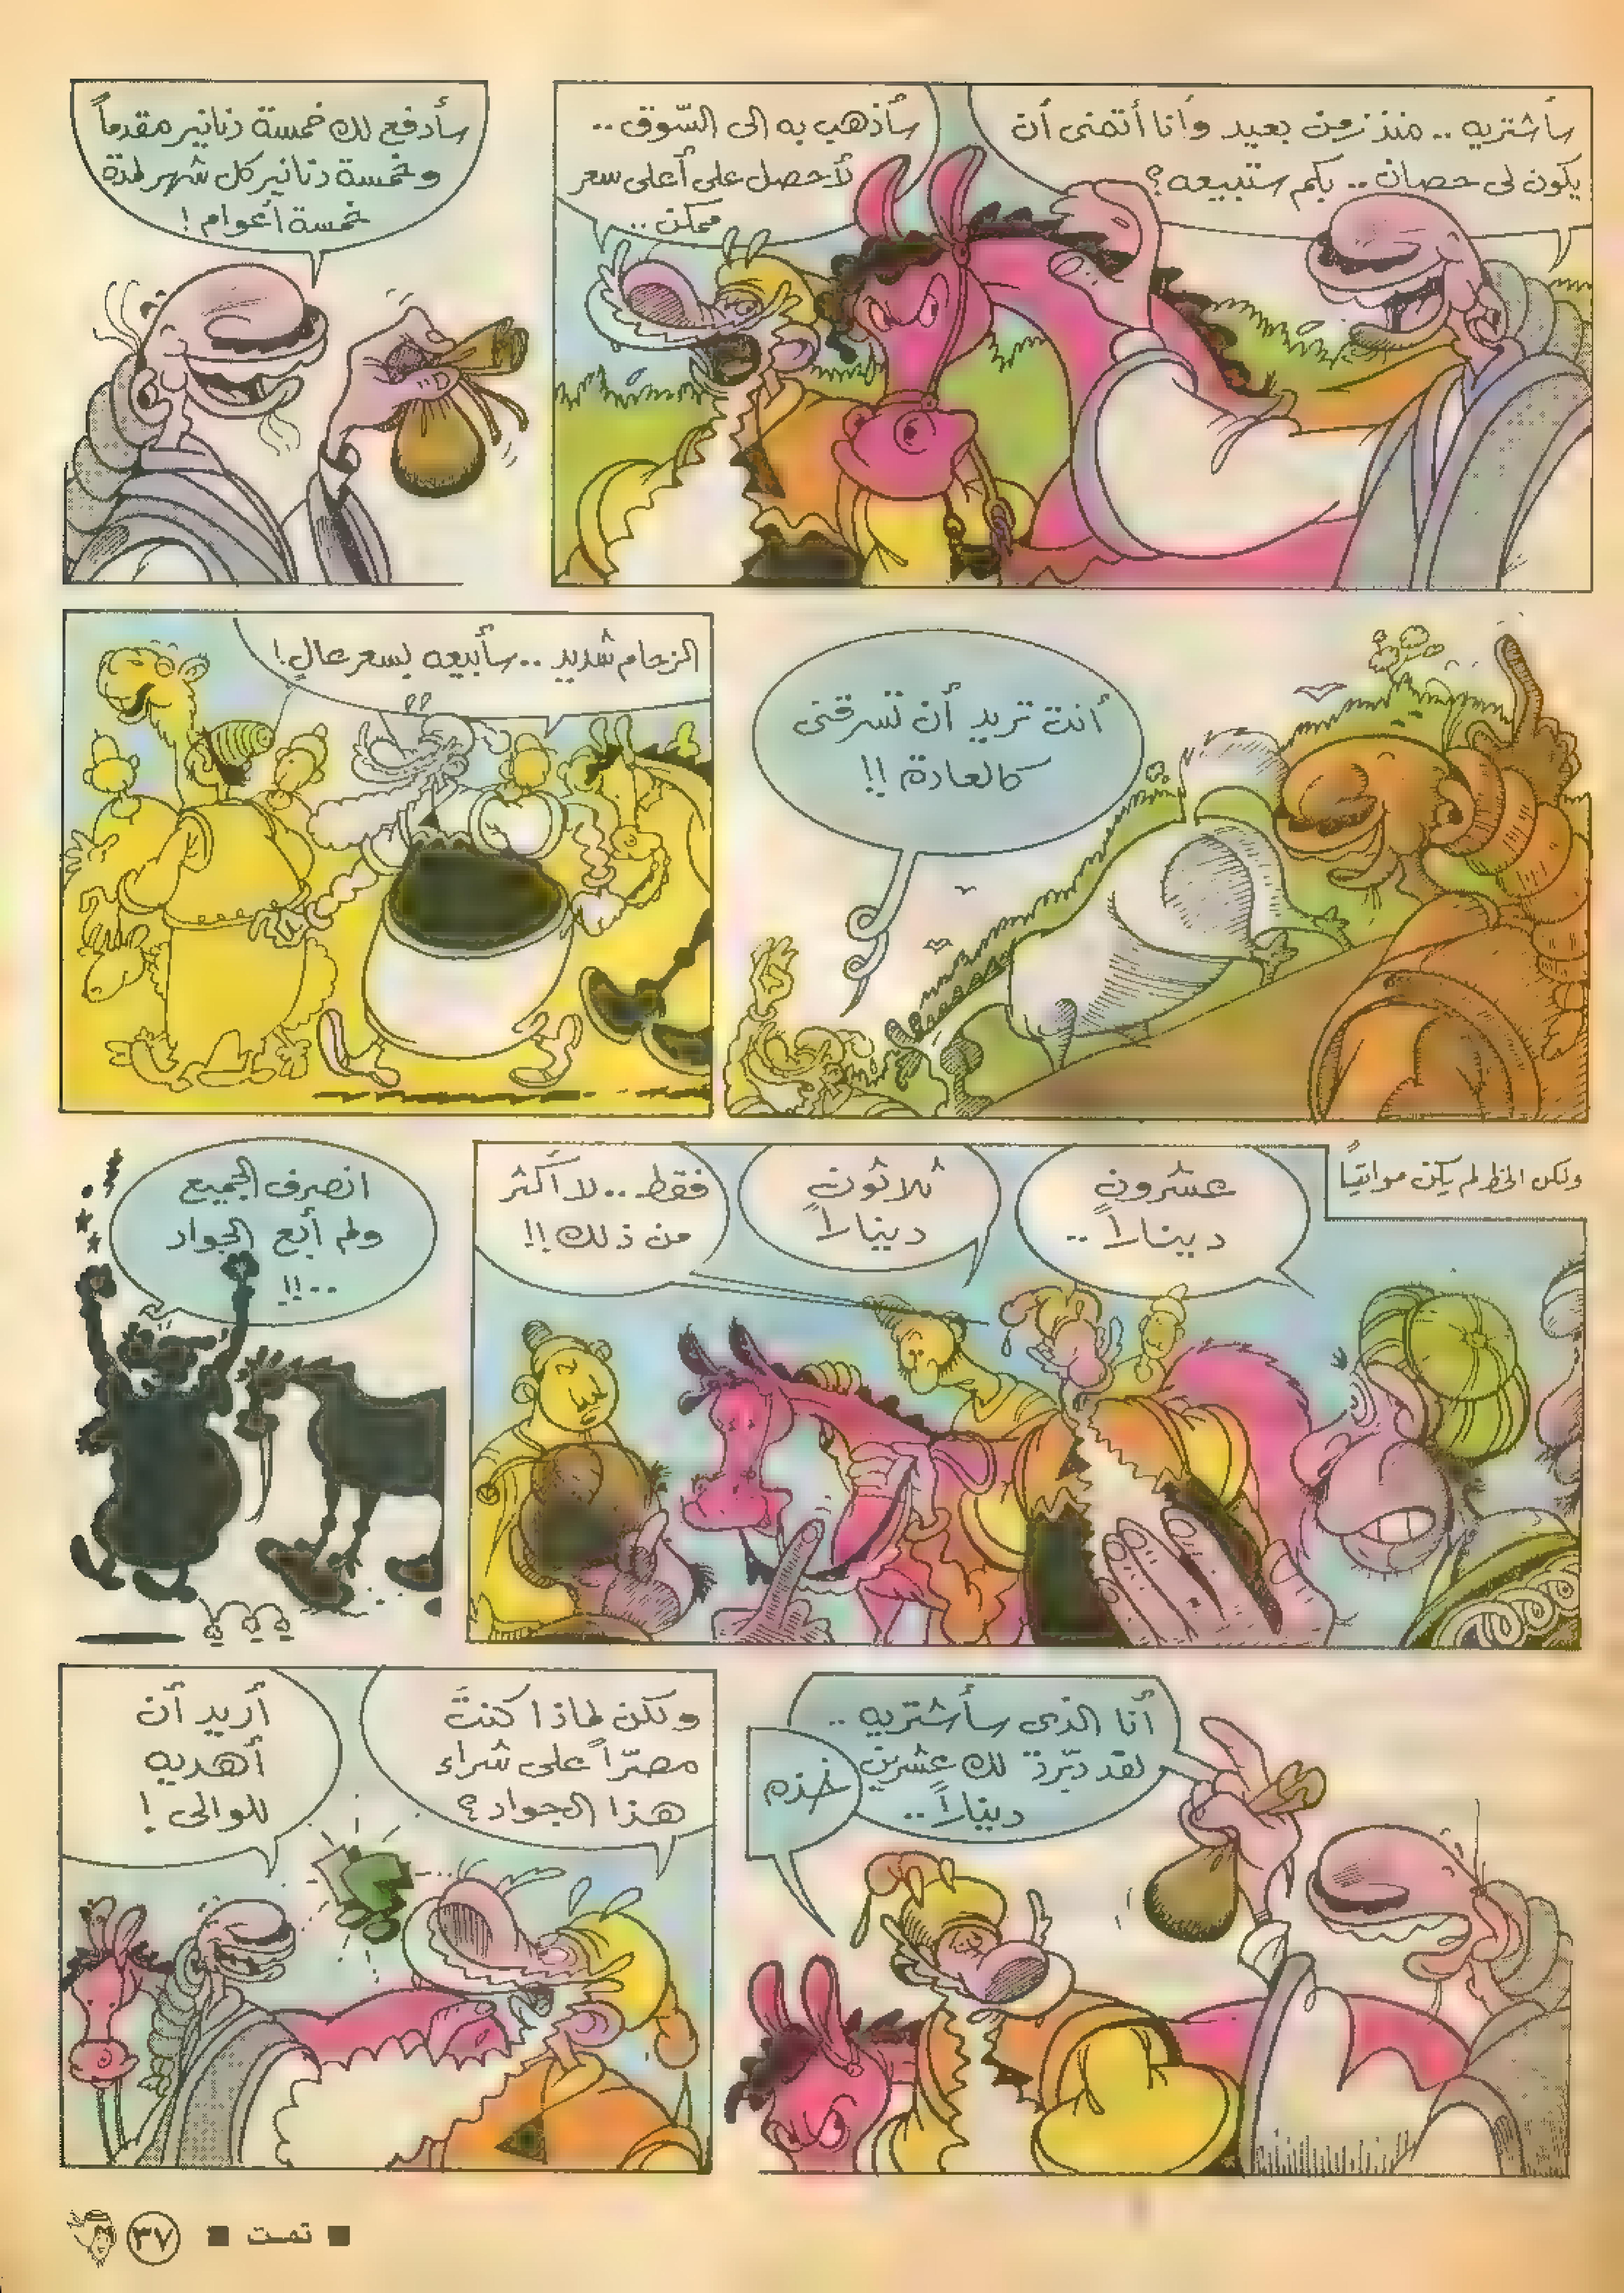 سأشتريه .. منذ زمن بعيد وأنا أتمنى أن
يكون لى حصان .. بكم ستبيعه؟
سأذهب به الى السّوق ..
لأحصل على أعلى سعر
ممكن ..
سأدفع لك خمسة دنانير مقدماً
وخمسة دنانير كل شهر لمدة
خمسة أعوام !
أنت تريد أن تسرقنى
كالعادة !!
الزحام شديد .. سأبيعه بسعر عالٍ !
ولكن الحظ لم يكن مواتياً
عشرون
ديناراً ..
ثلاثون
ديناراً
فقط .. لا أكثر
من ذلك !!
انصرف الجميع
ولم أبع الجواد
..!!
أنا الذى سأشتريه ..
لقد دبّرت لك عشرين
ديناراً ..
خذه
ولكن لماذا كنتَ
مصرّاً على شراء
هذا الجواد ؟
أريد أن
أهديه
للوالى !
■ تمت ■
٣٧